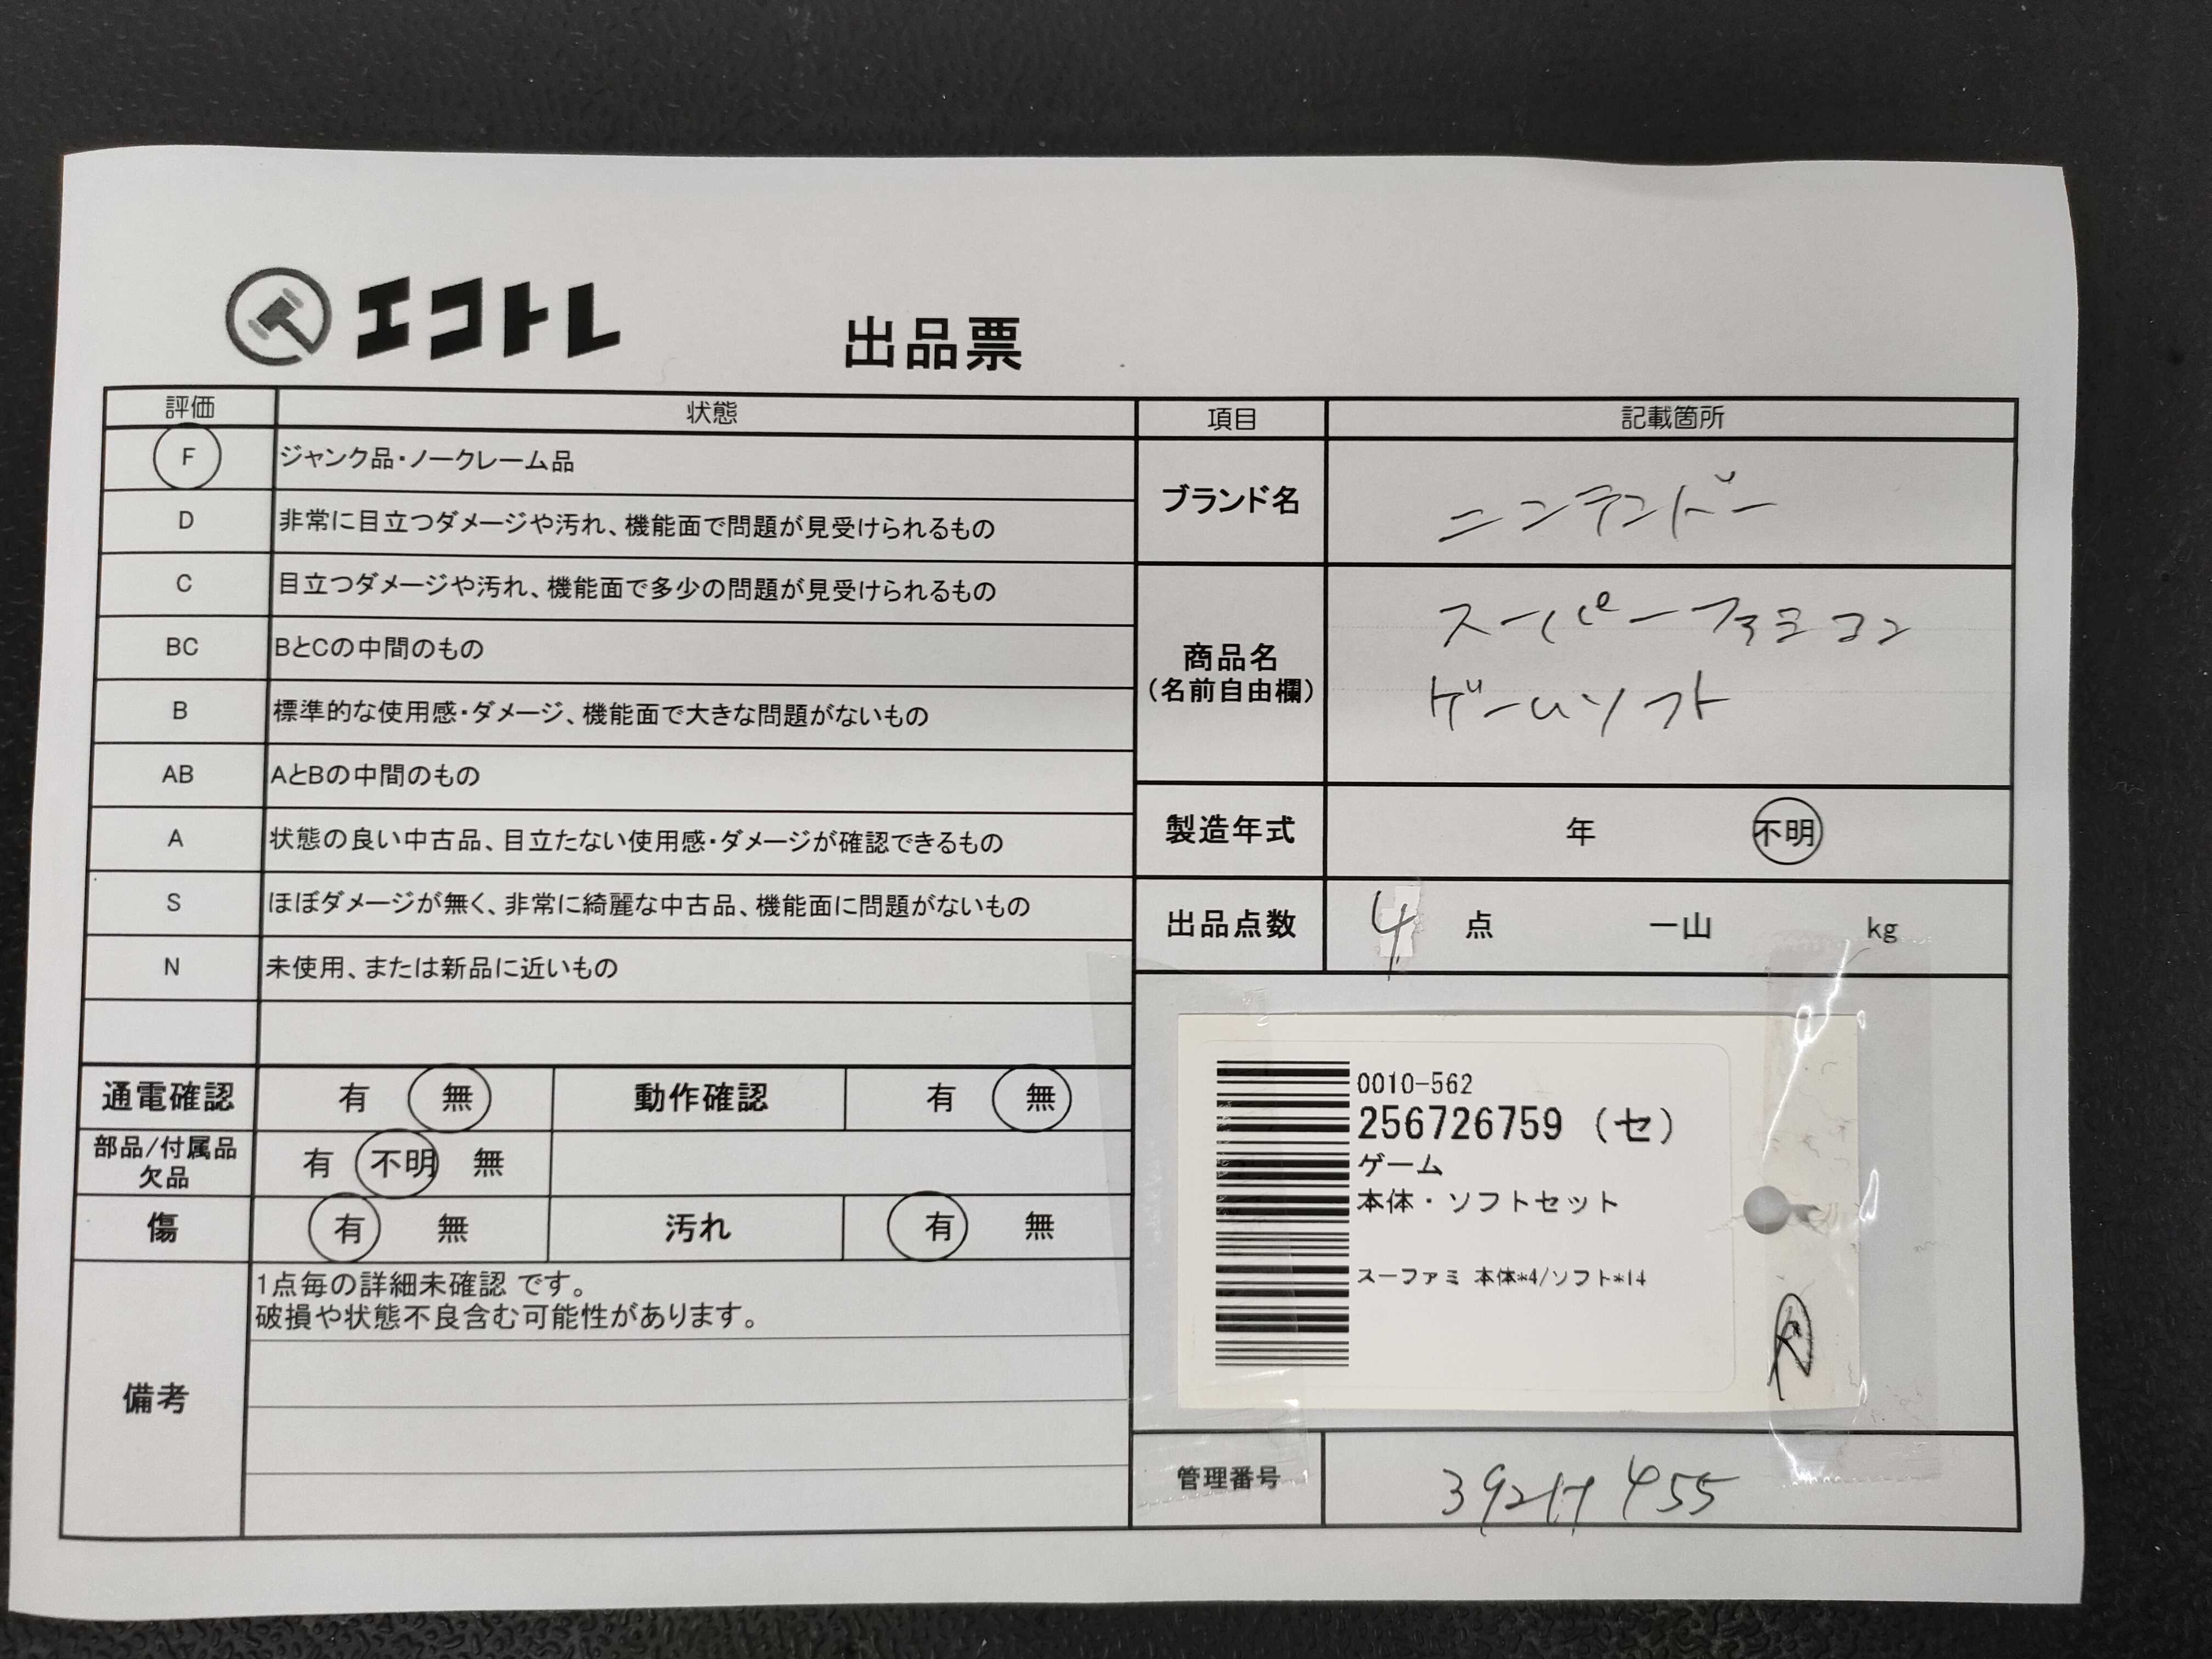 エコトレ
出品票
評価 状態
F ジャンク品・ノークレーム品
D 非常に目立つダメージや汚れ、機能面で問題が見受けられるもの
C 目立つダメージや汚れ、機能面で多少の問題が見受けられるもの
BC BとCの中間のもの
B 標準的な使用感・ダメージ、機能面で大きな問題がないもの
AB AとBの中間のもの
A 状態の良い中古品、目立たない使用感・ダメージが確認できるもの
S ほぼダメージが無く、非常に綺麗な中古品、機能面に問題がないもの
N 未使用、または新品に近いもの
通電確認 有 無 動作確認 有 無
部品/付属品 欠品 有 不明 無
傷 有 無 汚れ 有 無
備考
1点毎の詳細未確認 です。
破損や状態不良含む可能性があります。
項目 記載箇所
ブランド名 ニンテンドー
商品名
(名前自由欄)
スーパーファミコン
ゲームソフト
製造年式 年 不明
出品点数 4 点 一山 kg
0010-562
256726759 (セ)
ゲーム
本体・ソフトセット
スーファミ 本体*4/ソフト*14
管理番号